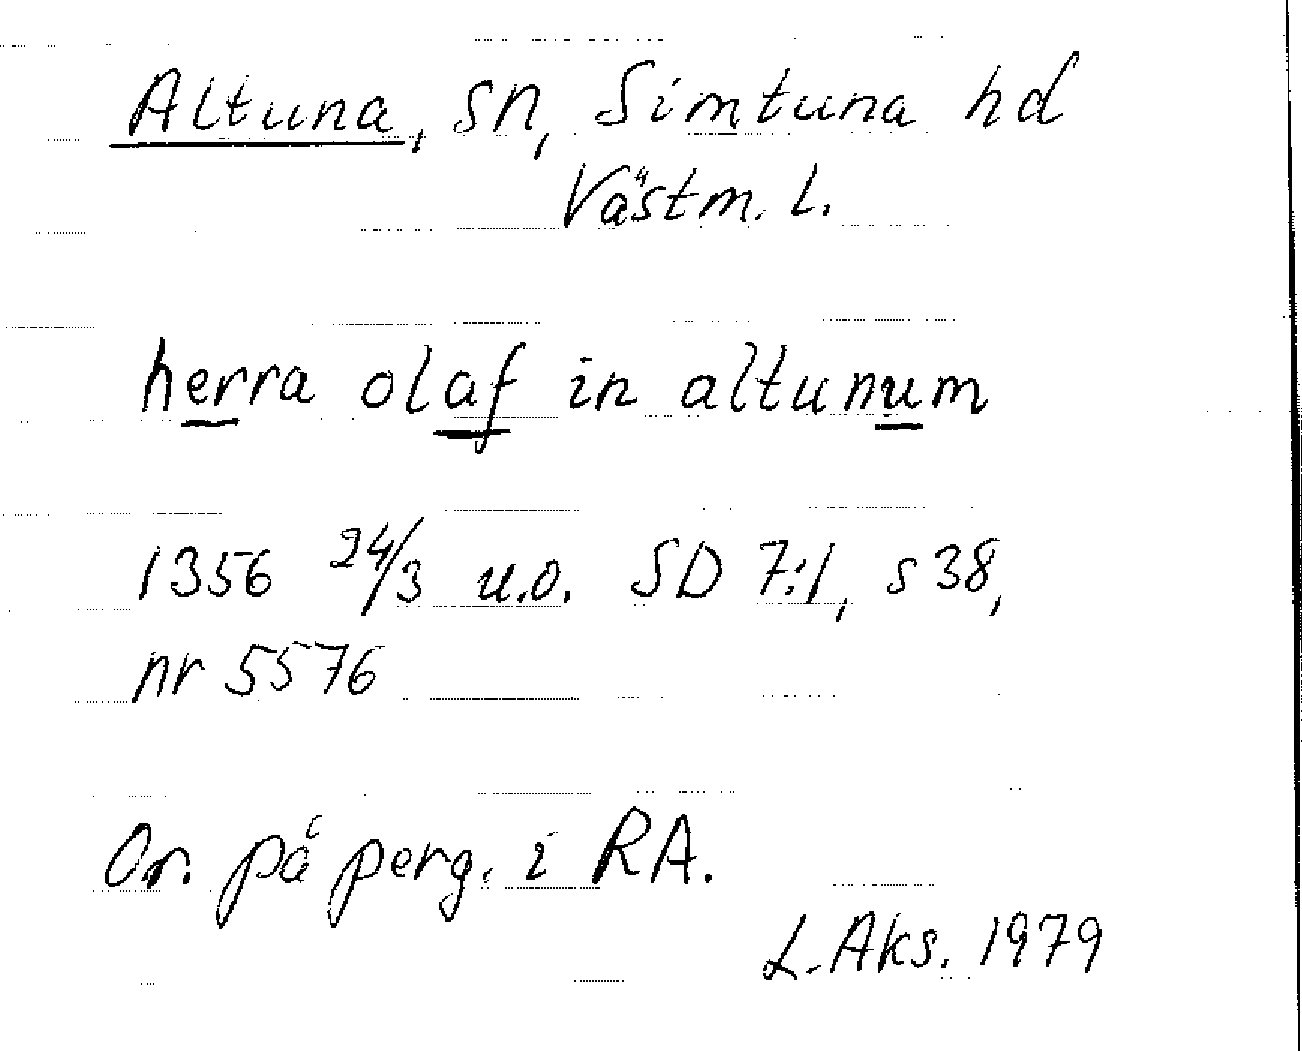 Altuna, sn, Simtuna hd
Västm. l.
herra olaf in altunum
1356 24/3 u.o. SD 7:1, s 38,
nr 5576
Or. på perg. i RA.
L. Aks. 1979